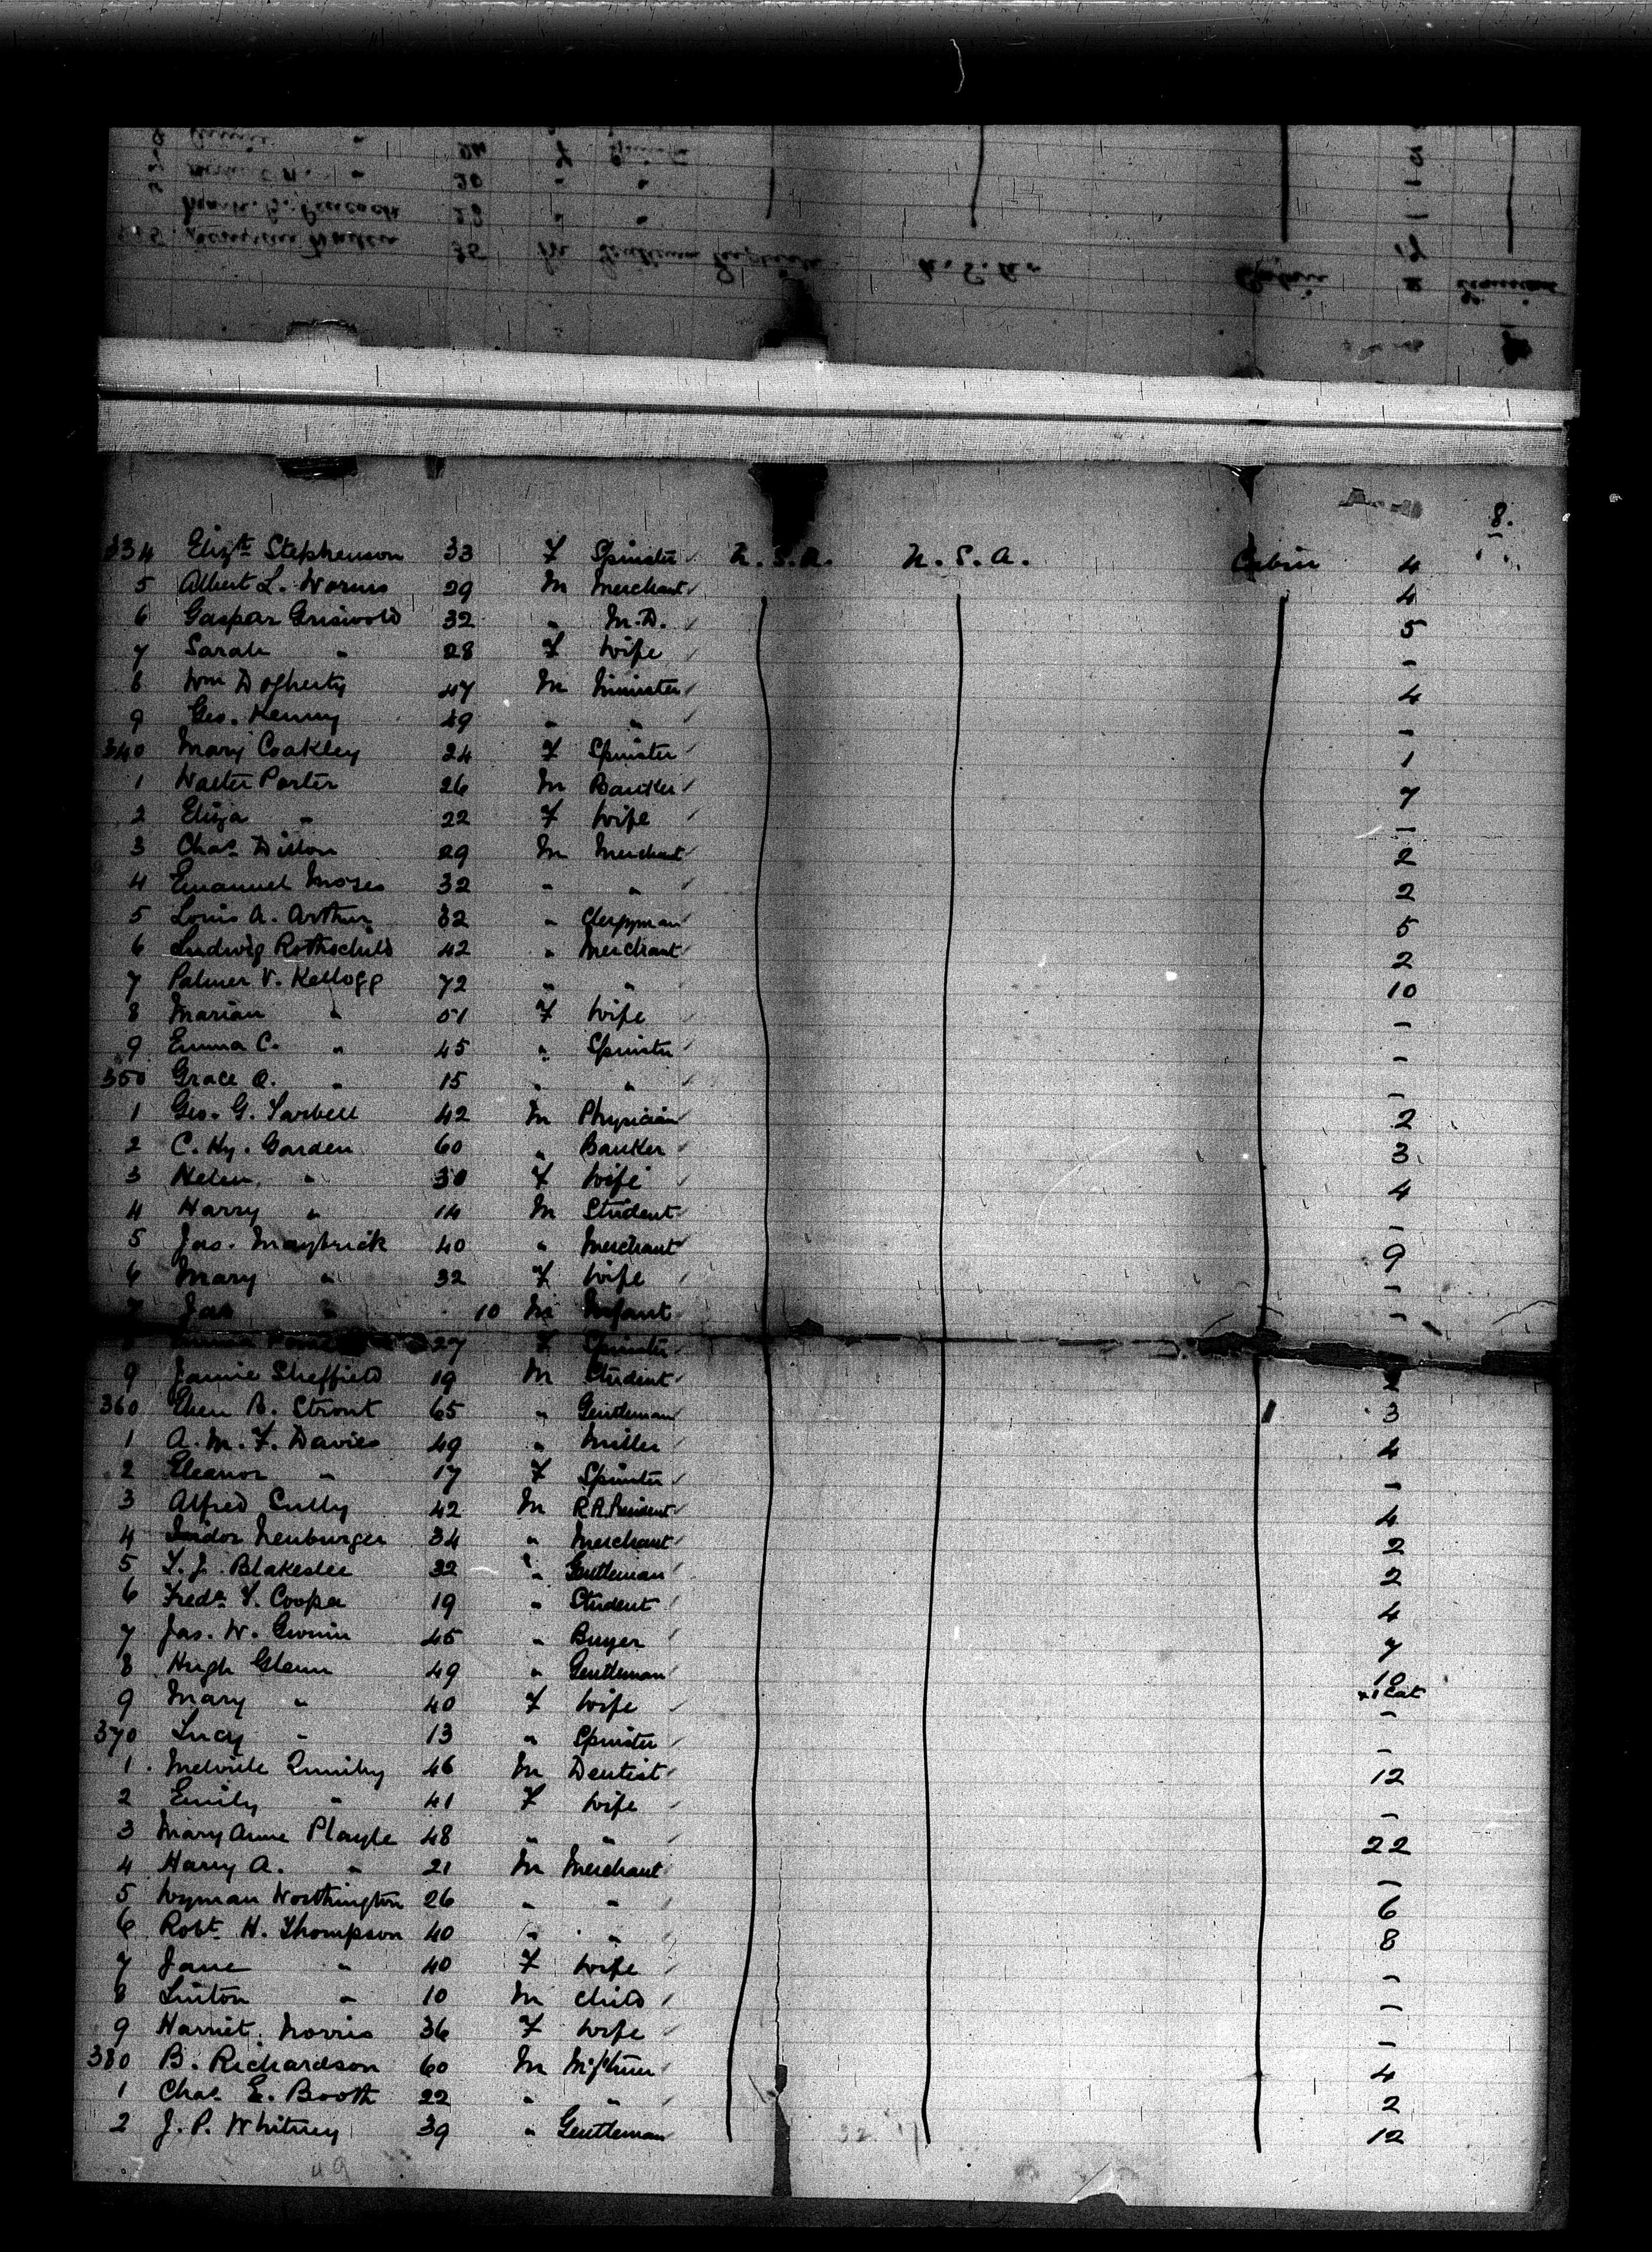 8.
334 Elizth Stephenson 33 F Spinster ✓ U.S.A. U.S.A. Cabin 4
5 Albert L. Worms 29 M Merchant ✓ 4
6 Gaspar Griswold 32 " M.D. ✓ 5
7 Sarah " 28 F Wife ✓ –
8 Wm Dogherty 47 M Minister ✓ 4
9 Geo. Kenny 49 " " ✓ –
340 Mary Coakley 24 F Spinster ✓ 1
1 Walter Porter 26 M Banker ✓ 7
2 Eliza " 22 F Wife ✓ –
3 Chas. Dillon 29 M Merchant ✓ 2
4 Emanuel Moses 32 " " ✓ 2
5 Louis A. Arthur 32 " Clergyman ✓ 5
6 Ludwig Rothschild 42 " Merchant ✓ 2
7 Palmer V. Kellogg 72 " " ✓ 10
8 Marian " 51 F Wife ✓ –
9 Emma C. " 45 " Spinster ✓ –
350 Grace A. " 15 " " ✓ –
1 Geo. G. Tarbell 42 M Physician ✓ 2
2 C. Hy. Garden 60 " Banker ✓ 3
3 Helen " 30 F Wife ✓ 4
4 Harry " 14 M Student ✓ –
5 Jas. Maybrick 40 " Merchant ✓ 9
6 Mary " 32 F Wife ✓ –
7 Jas " 10 M Infant ✓ –
27 F Spinster ✓
9 Jamie Sheffield 19 M Student ✓ 2
360 Eben B. Strout 65 " Gentleman ✓ 3
1 A. M. F. Davies 49 " Miller ✓ 4
2 Eleanor " 17 F Spinster ✓ –
3 Alfred Sully 42 M R.R. President ✓ 4
4 Isidor Neuburger 34 " Merchant ✓ 2
5 T. J. Blakeslee 32 " Gentleman ✓ 2
6 Fredk T. Cooper 19 " Student ✓ 4
7 Jas. W. Gwinn 45 " Buyer ✓ 7
8 Hugh Glenn 49 " Gentleman ✓ 10
+1 Cat
9 Mary " 40 F Wife ✓ –
370 Lucy " 13 " Spinster ✓ –
1 Melville Quinby 46 M Dentist ✓ 12
2 Emily " 41 F Wife ✓ –
3 Mary Anne Playle 48 " " ✓ 22
4 Harry A. " 21 M Merchant ✓ –
5 Wyman Worthington 26 " " ✓ 6
6 Robt. H. Thompson 40 " " ✓ 8
7 Jane " 40 F Wife ✓ –
8 Linton " 10 M Child ✓ –
9 Harriet Norris 36 F Wife ✓ –
380 B. Richardson 60 M Mfcturer ✓ 4
1 Chas. E. Booth 22 " " ✓ 2
2 J. P. Whitney 39 " Gentleman ✓ 12